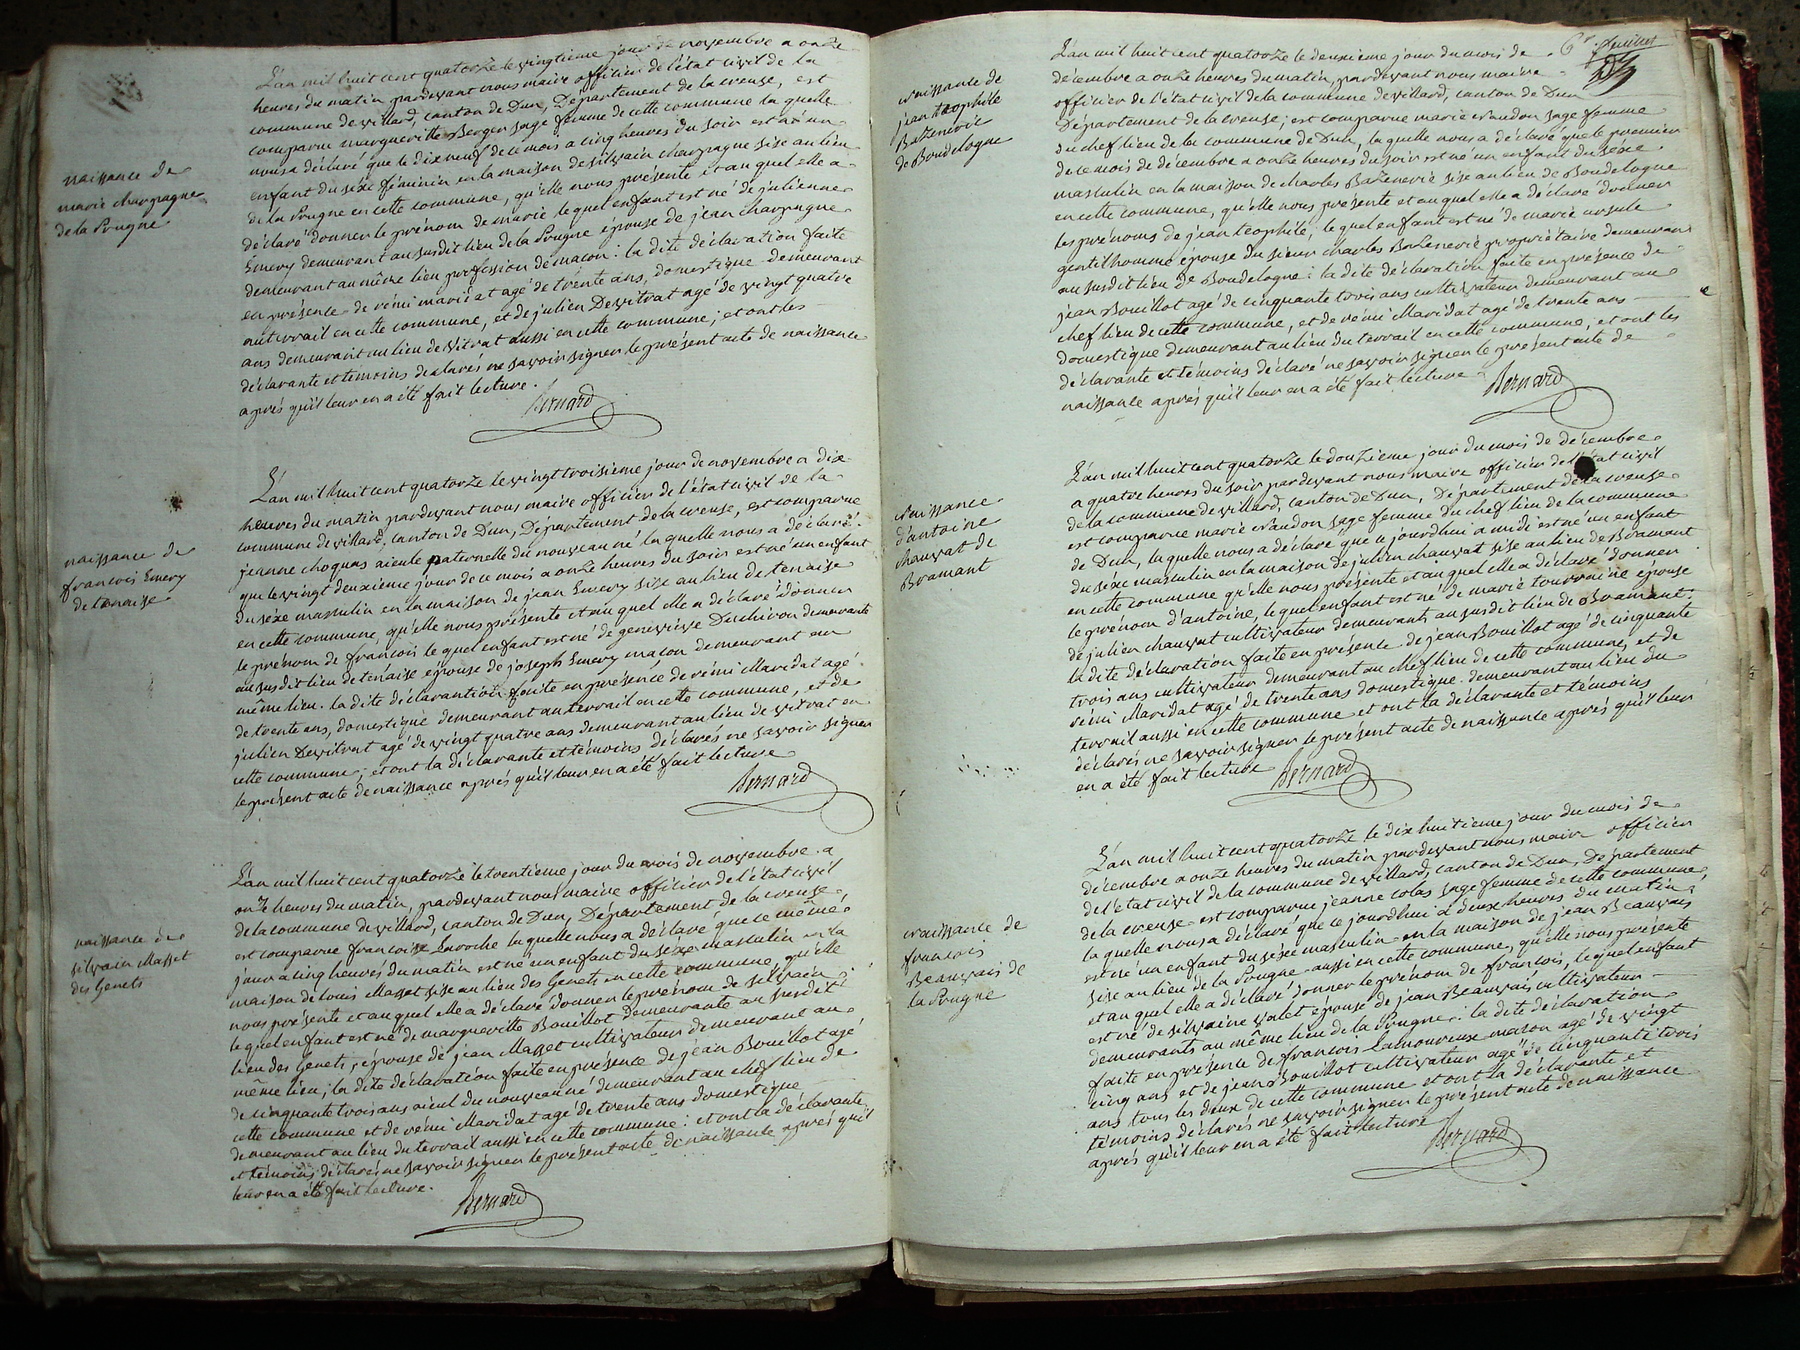 naissance de
marie charpagne
de la Prugne
L'an mil huit cent quatorze le vingtième jour de novembre a onze
heures du matin pardevant nous maire officier de l'état civil de la
commune de villard, canton de Dun, Département de la creuse, est
comparu margueritte Berger sage femme de cette commune la quelle
nous a déclaré que le dix neuf de ce mois a cinq heures du soir est né un
enfant du séxe féminin en la maison de silvain charpagne sise au lieu
de la Prugne en cette commune, qu'elle nous présente et au quel elle a
déclaré donner le prénom de marie le quel enfant est né de julienne
Emery demeurant au susdit lieu de la Prugne épouse de jean charpagne
demeurant au même lieu profession de macon : la dite déclaration faite
en présence de rémi maridat agé de trente ans, domestique demeurant
au terrail en cette commune, et de julien Devitrat agé de vingt quatre
ans demeurant au lieu de vitrat aussi en cette commune ; et ont les
déclarante et temoins déclarés ne savoir signer le présent acte de naissance
après qu'il leur en a été fait lecture.
Bernard
naissance de
francois Emery
de tenaise
L'an mil huit cent quatorze le vingt troisieme jour de novembre a dix
heures du matin pardevant nous maire officier de l'état civil de la
commune de villard, canton de Dun, Département de la creuse, est comparue
jeanne choquas aieule paternelle du nouveau né la quelle nous a déclaré
que le vingt deuxieme jour de ce mois a onze heures du soir est né un enfant
du séxe masculin en la maison de jean Emery sise au lieu de tenaise
en cette commune, qu'elle nous présente et au quel elle a déclaré donner
le prénom de francois le quel enfant est né de genevieve Duchiron demeurante
au susdit lieu de ténaise épouse de joseph Emery macon demeurant au
même lieu. la dite déclarantion faite en présence de rémi Maridat agé
de trente ans, domestique demeurant au terrail en cette commune, et de
julien Devitrat agé de vingt quatre ans demeurant au lieu de vitrat en
cette commune ; et ont la déclarante et témoins déclarés ne savoir signer
le présent acte de naissance après qu'il leur en a été fait lecture
Bernard
naissance de
silvain Masset
des Genets
L'an mil huit cent quatorze le trentieme jour du mois de novembre a
onze heures du matin, pardevant nous maire officier de l'état civil
de la commune de villard, canton de Dun, Département de la creuse
est comparue francoise Laroche la quelle nous a déclaré que le même
jour a cinq heures du matin est né un enfant du séxe masculin en la
maison de louis Masset sise au lieu des Genets en cette commune, qu'elle
nous présente et au quel elle a déclaré donner le prénom de silvain
le quel enfant est né de margueritte Bouillot demeurante au susdit
lieu des Genets, épouse de jean Masset cultivateur demeurant au
même lieu ; la dite déclaration faite en présence de jean Bouillot agé
de cinquante trois ans aieul du nouveau né demeurant au chef lieu de
cette commune et de rémi Maridat agé de trente ans domestique
demeurant au lieu du terrail aussi en cette commune : et ont la déclarante
et témoins déclaré ne savoir signer le présent acte de naissance après qu'il
leur en a été fait lecture.
Bernard
6e feuillet
naissance de
jean téophile
Bazenerie
de Boudelogne
L'an mil huit cent quatorze le deuxieme jour du mois de
décembre a onze heures du matin, pardevant nous maire
officier de l'état civil de la commune de villard, canton de Dun
Département de la creuse ; est comparue marie Naudon sage femme
du chef lieu de la commune de Dun, la quelle nous a déclaré que le premier
de ce mois de décembre a onze heures du soir est né un enfant du séxe
masculin en la maison de charles Bazenerie sise au lieu de Boudelogne
en cette commune, qu'elle nous présente et au quel elle a déclaré donner
les prénoms de jean téophile, le quel enfant est né de marie ursule
gentilhomme épouse du sieur charles Bazenerie propriétaire demeurans
au susdit lieu de Boudelogne : la dite déclaration faite en présence de
jean Bouillot agé de cinquante trois ans cultivateur demeurant au
chef lieu de cette commune, et de rémi Maridat agé de trente ans
domestique demeurant au lieu du terrail en cette commune, et ont les
déclarante et témoins déclaré ne savoir signer le présent acte de
naissance après qu'il leur en a été fait lecture
Bernard
Naissance
d'antoine
chauvat de
Bramant
L'an mil huit cent quatorze le douzieme jour du mois de décembre
a quatre heures du soir pardevant nous maire officier de l'état civil
de la commune de villard, canton de Dun, Département de la creuse
est comparue marie Naudon sage femme du chef lieu de la commune
de Dun, la quelle nous a déclaré que ce jourdhui a midi est né un enfant
du séxe masculin en la maison de julien chauvat sise au lieu de Bramant
en cette commune qu'elle nous présente et au quel elle a déclaré donner
le prénom d'antoine, le quel enfant est né de marie tourraine épouse
de julien chauvat cultivateur demeurants au susdit lieu de Bramant ;
la dite déclaration faite en présence de jean Bouillot agé de cinquante
trois ans cultivateur demeurant au chef lieu de cette commune, et de
rémi Maridat agé de trente ans domestique demeurant au lieu du
terrail aussi en cette commune et ont la déclarante et témoins
déclarés ne savoir signer le présent acte de naissance après qu'il leur
en a été fait lecture
Bernard
naissance de
francois
Beauvais de
la Prugne
L'an mil huit cent quatorze le dix huitieme jour du mois de
décembre a onze heures du matin pardevant nous maire officier
de l'état civil de la commune de villard, canton de Dun, Département
de la creuse est comparue jeanne colas sage femme de cette commune,
la quelle nous a déclaré que ce jourdhui a deux heures du matin
est né un enfant du séxe masculin en la maison de jean Beauvais
sise au lieu de la Prugne aussi en cette commune, qu'elle nous présente
et au quel elle a déclaré donner le prénom de francois, le quel enfant
est né de silvaine valet épouse de jean Beauvais cultivateur
demeurants au même lieu de la Prugne : la dite déclaration
faite en présence de francois Lamoureux macon agé de vingt
cinq ans et de jean Bouillot cultivateur agé de cinquante trois
ans tous les deux de cette commune et ont la déclarante et
témoins déclarés ne savoir signer le présent acte de naissance
après qu'il leur en a été fait lecture
Bernard